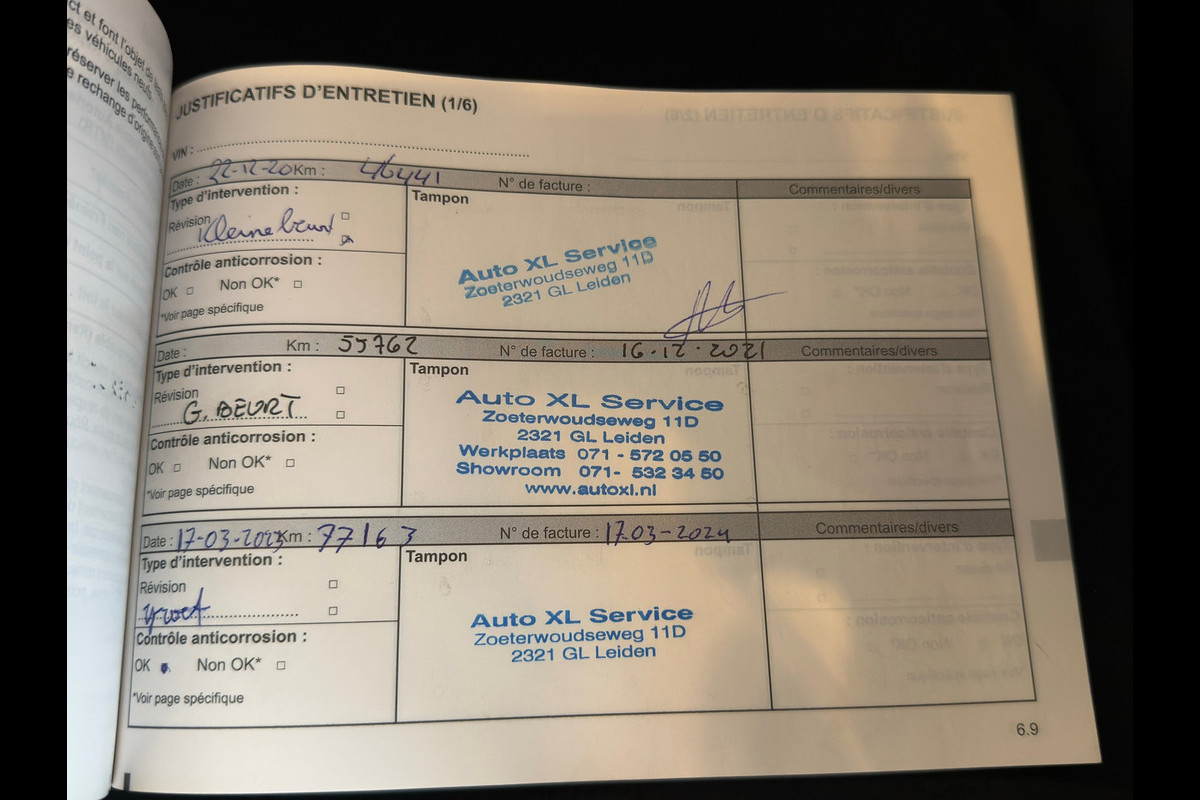 ct et font l'objet de
es véhicules neufs.
réserver les performances
e rechange d'origine
JUSTIFICATIFS D'ENTRETIEN (1/6)
VIN :
Date : 22-12-20 Km : 46441 N° de facture : Commentaires/divers
Type d'intervention : Tampon
Révision
Kleine beurt
Contrôle anticorrosion :
OK Non OK*
*Voir page spécifique
Auto XL Service
Zoeterwoudseweg 11D
2321 GL Leiden
Date : Km : 55762 N° de facture : 16-12-2021 Commentaires/divers
Type d'intervention : Tampon
Révision
G. BEURT
Contrôle anticorrosion :
OK Non OK*
*Voir page spécifique
Auto XL Service
Zoeterwoudseweg 11D
2321 GL Leiden
Werkplaats 071 - 572 05 50
Showroom 071- 532 34 50
www.autoxl.nl
Date : 17-03-2023 Km : 77163 N° de facture : 17.03-2024 Commentaires/divers
Type d'intervention : Tampon
Révision
groot
Contrôle anticorrosion :
OK Non OK*
*Voir page spécifique
Auto XL Service
Zoeterwoudseweg 11D
2321 GL Leiden
6.9